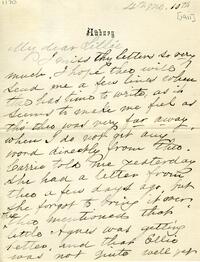 1170
Asbury
4th mo. 10th
[1911]
My dear
I miss thy letters so very
much. I hope thee will
send me a few lines when
thee has time to write, as it
seems to make me feel as
tho' thee was very far away
when I do not get any
word directly from thee.
Carrie told me yesterday
she had a letter from
thee a few days ago, but
she forgot to bring it over,
thee mentioned that
little Agnes was getting
better, and that Ollie
was not quite well yet